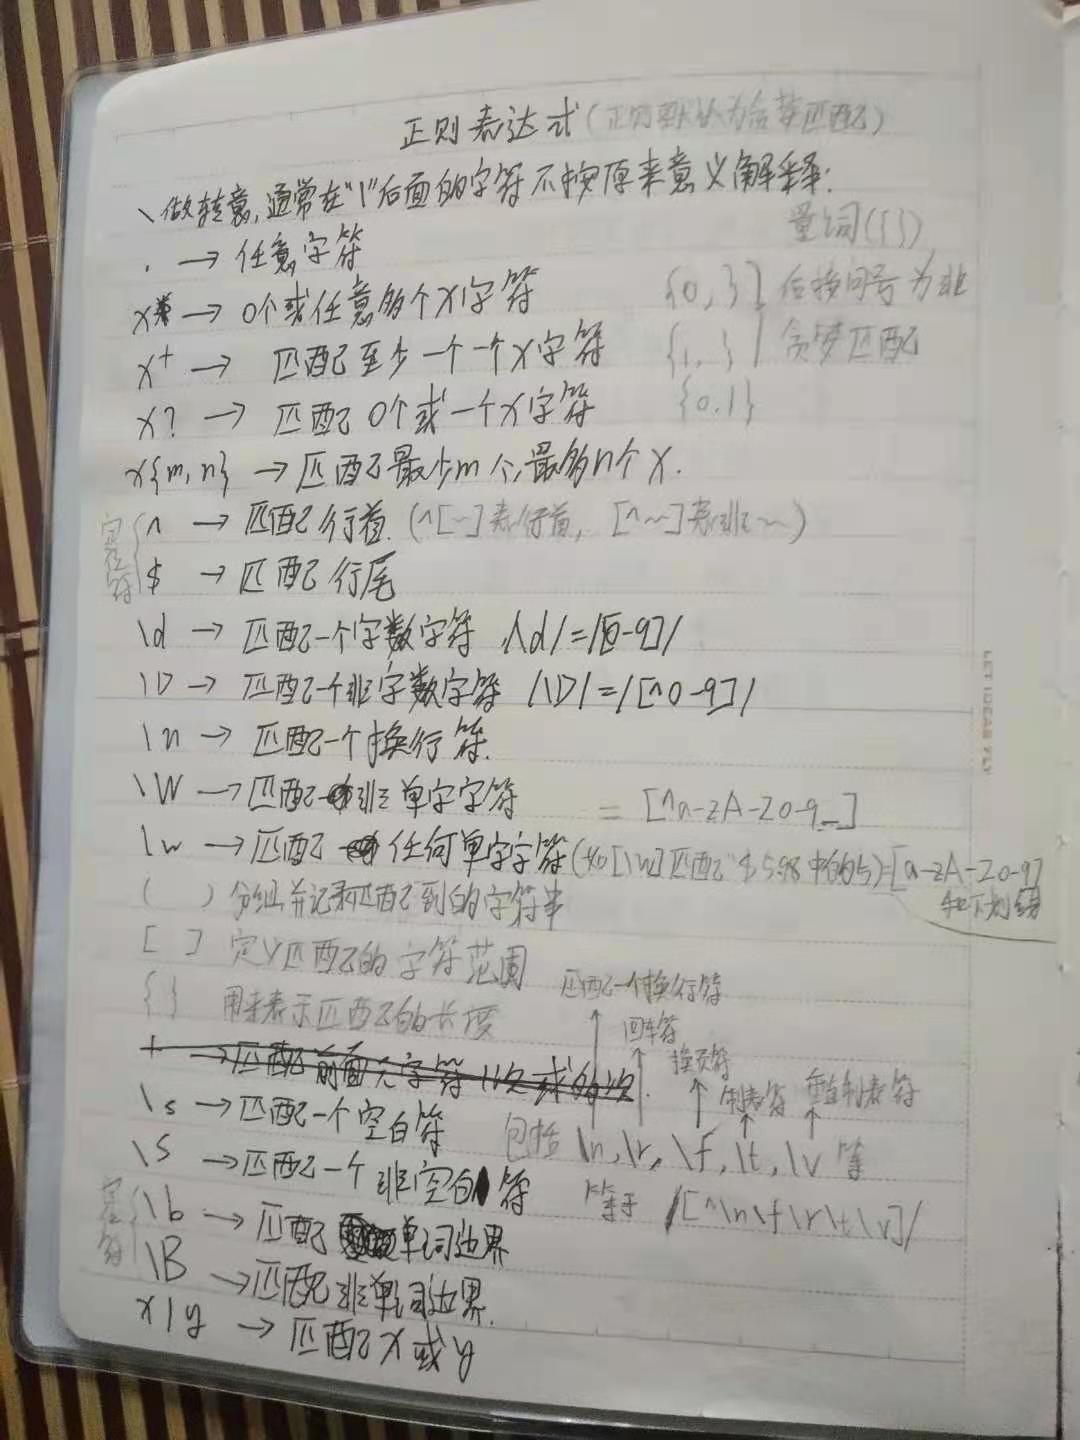 正则表达式(正则默认为贪婪匹配)
\ 做转意,通常在"\"后面的字符不按原来意义解释:
. → 任意字符
量词({})
x* → 0个或任意多个x字符 {0, }
x+ → 匹配至少一个一个x字符 {1, }
后接问号为非贪婪匹配
x? → 匹配0个或一个x字符 {0,1}
x{m,n} → 匹配最少m个,最多n个x.
定位符
^ → 匹配行首 (^[~]表行首, [^~~]表非~~)
$ → 匹配行尾
\d → 匹配一个字数字符 /\d/=/[0-9]/
\D → 匹配一个非字数字符 /\D/=/[^0-9]/
\n → 匹配一个换行符.
\W → 匹配一非单字字符 = [^a-zA-Z0-9_]
\w → 匹配任何单字字符(如[\w]匹配"$5.98中的5)=[a-zA-Z0-9]
和下划线
( ) 分组并记录匹配到的字符串
[ ] 定义匹配的字符范围
{ } 用来表示匹配的长度
匹配一个换行符
回车符
换页符
制表符
垂直制表符
+ → 匹配前面元字符1次或多次.
\s → 匹配一个空白符 包括 \n, \r, \f, \t, \v 等
\S → 匹配一个非空白符 等于 /[^\n\f\r\t\v]/
定位符
\b → 匹配单词边界
\B → 匹配非单词边界.
x|y → 匹配x或y
LET IDEAS FLY